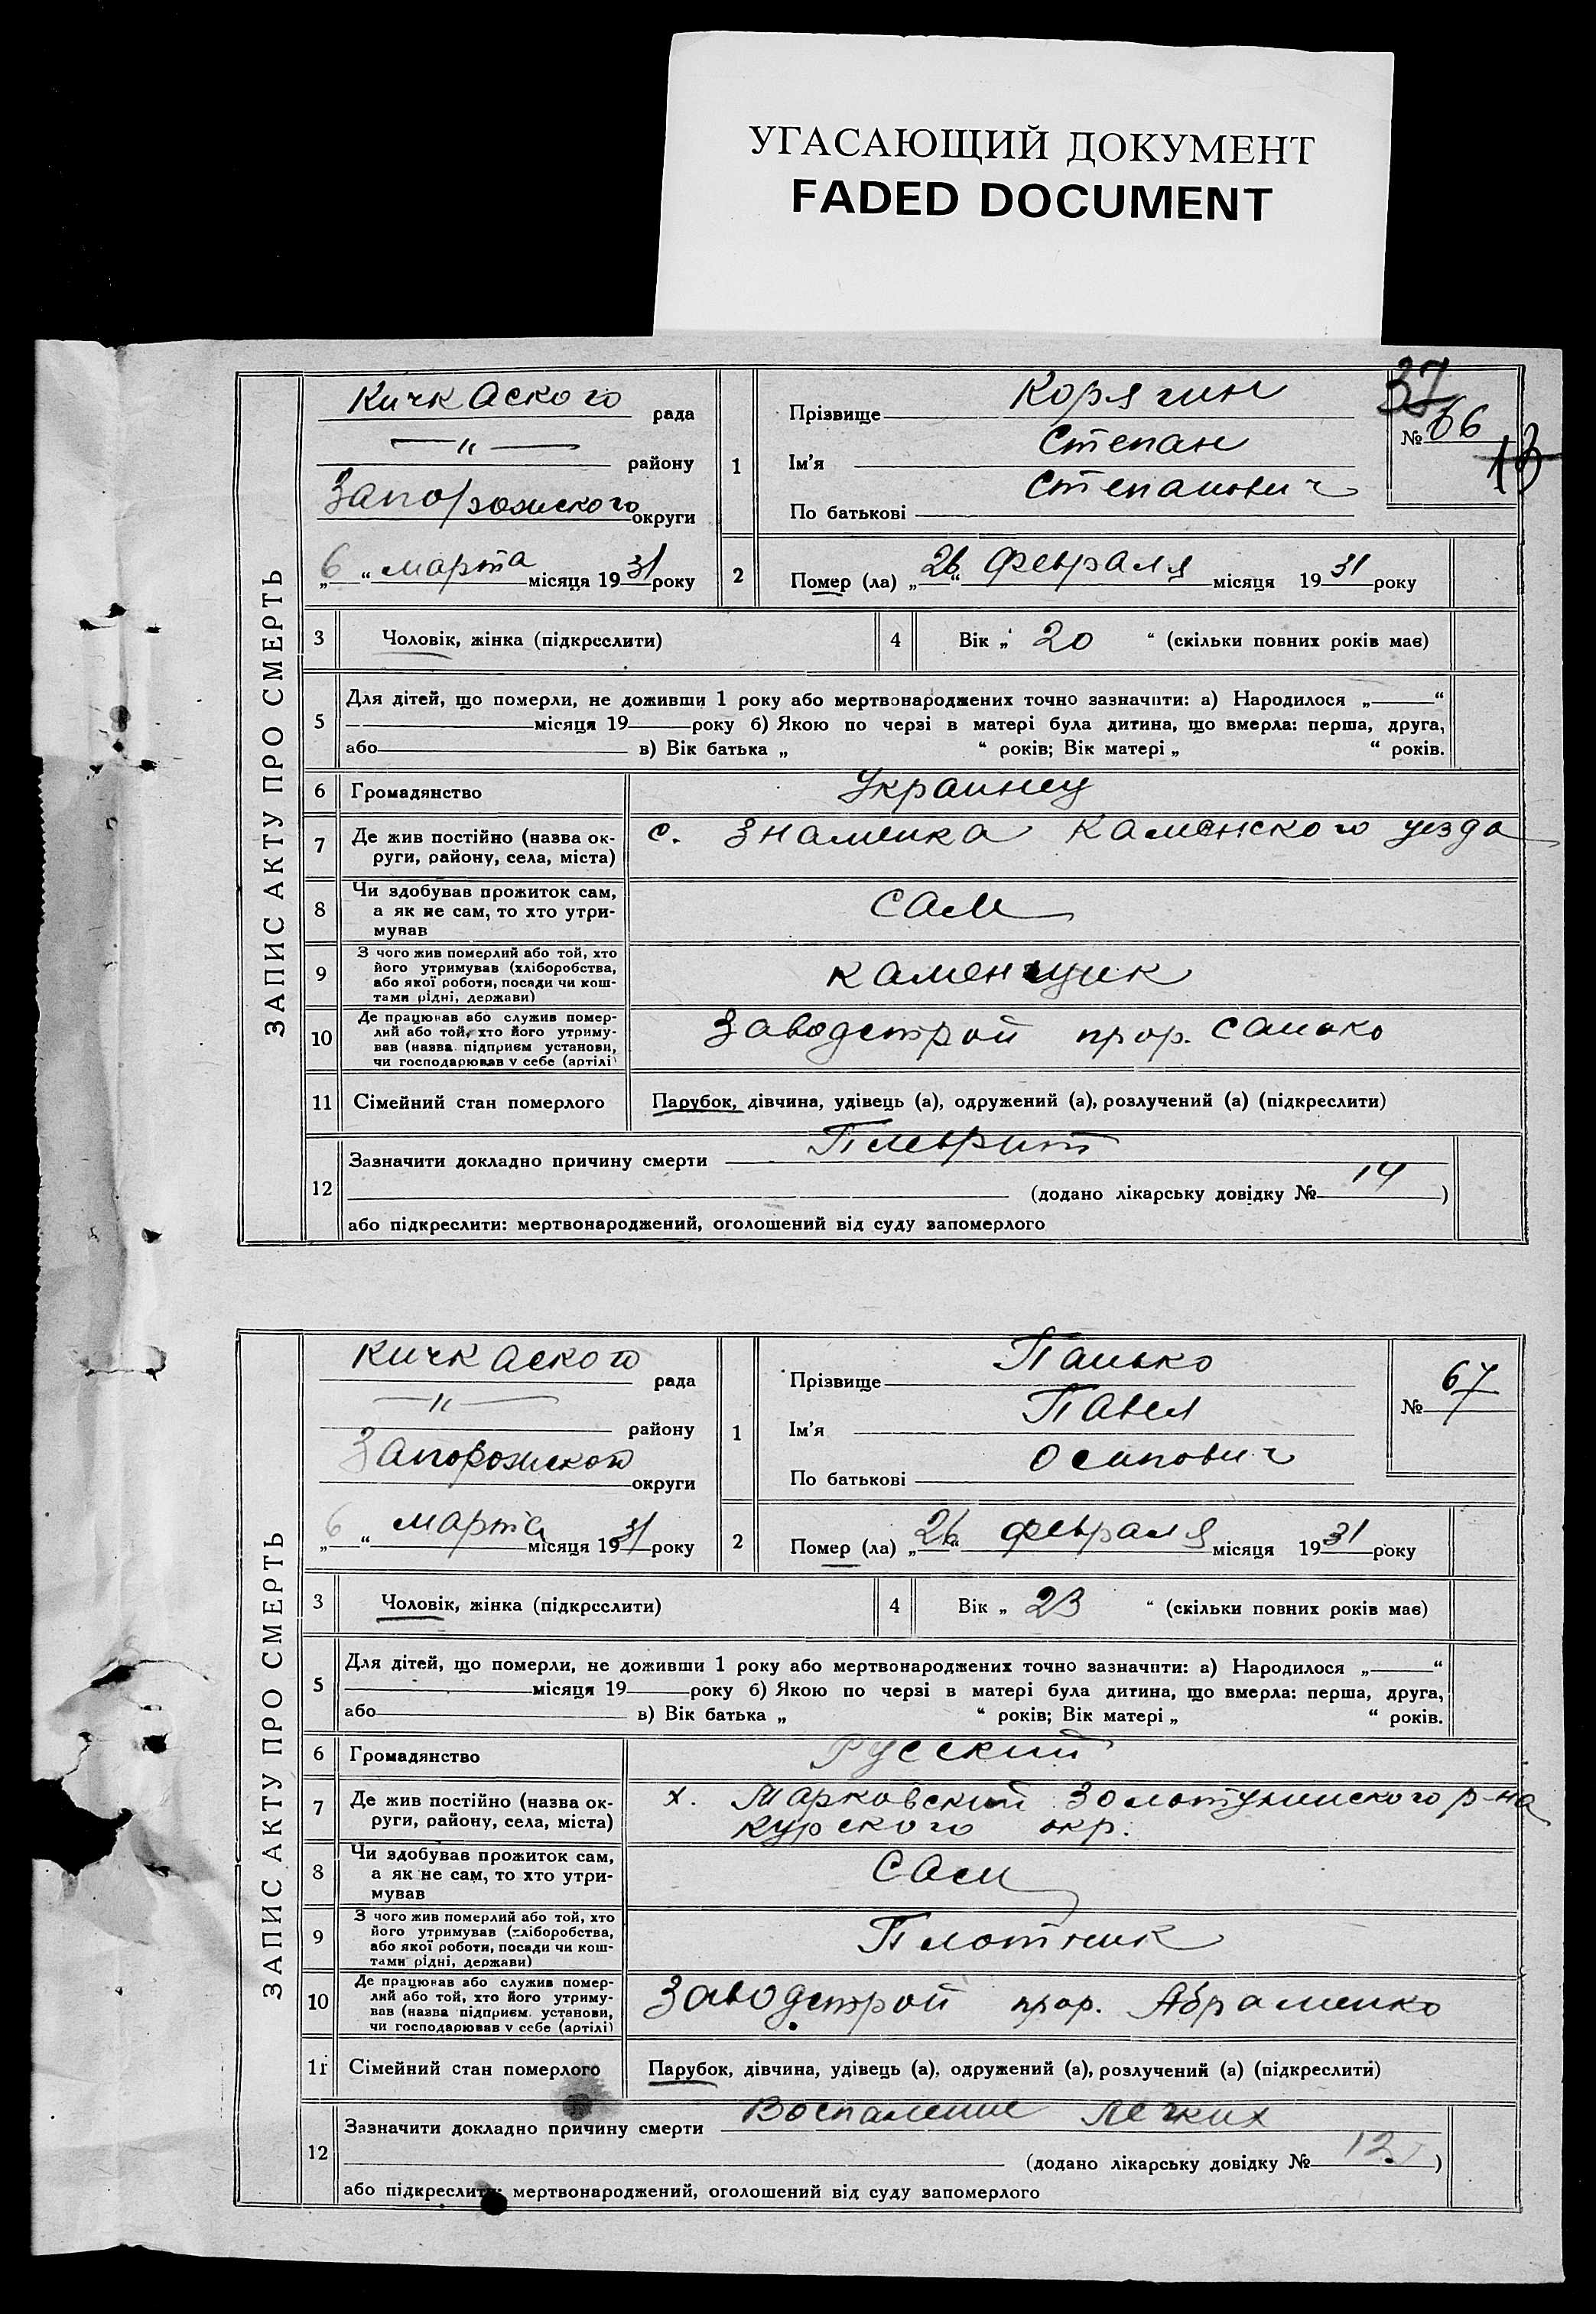 УГАСАЮЩИЙ ДОКУМЕНТ
FADED DOCUMENT
37
ЗАПИС АКТУ ПРО СМЕРТЬ
Кичкаского рада
— " — району
Запорожского округи
„6“ марта місяця 1931 року
1
Прізвище Корягин
Ім'я Степан
По батькові Степанович
№ 66
13
2 Помер (ла) „26“ февраля місяця 1931 року
3 Чоловік, жінка (підкреслити)
4 Вік „ 20 “ (скільки повних років має)
5 Для дітей, що померли, не доживши 1 року або мертвонароджених точно зазначити: а) Народилося „——“
місяця 19 року б) Якою по черзі в матері була дитина, що вмерла: перша, друга,
або в) Вік батька „ “ років; Вік матері „ “ років.
6 Громадянство Украинец
7 Де жив постійно (назва ок-
руги, району, села, міста)
с. Знаменка Каменского уезда
8 Чи здобував прожиток сам,
а як не сам, то хто утри-
мував
сам
9 З чого жив померлий або той, хто
його утримував (хліборобства,
або якої роботи, посади чи кош-
тами рідні, держави)
каменщик
10 Де працював або служив помер-
лий або той, хто його утриму-
вав (назва підприєм установи,
чи господарював у себе (артілі)
Заводстрой прор. Санько
11 Сімейний стан померлого Парубок, дівчина, удівець (а), одружений (а), розлучений (а) (підкреслити)
12 Зазначити докладно причину смерти Плеврит
(додано лікарську довідку № 14)
або підкреслити: мертвонароджений, оголошений від суду запомерлого
ЗАПИС АКТУ ПРО СМЕРТЬ
Кичкаского рада
— " — району
Запорожского округи
„6“ марта місяця 1931 року
1
Прізвище Панько
Ім'я Павел
По батькові Осипович
№ 67
2 Помер (ла) „26“ февраля місяця 1931 року
3 Чоловік, жінка (підкреслити)
4 Вік „ 23 “ (скільки повних років має)
5 Для дітей, що померли, не доживши 1 року або мертвонароджених точно зазначити: а) Народилося „——“
місяця 19 року б) Якою по черзі в матері була дитина, що вмерла: перша, друга,
або в) Вік батька „ “ років; Вік матері „ “ років.
6 Громадянство Русский
7 Де жив постійно (назва ок-
руги, району, села, міста)
х. Марковский Золотухинского р-на
Курского окр.
8 Чи здобував прожиток сам,
а як не сам, то хто утри-
мував
Сам
9 З чого жив померлий або той, хто
його утримував (хліборобства,
або якої роботи, посади чи кош-
тами рідні, держави)
Плотник
10 Де працював або служив помер-
лий або той, хто його утриму-
вав (назва підприєм. установи,
чи господарював у себе (артілі)
Заводстрой прор. Абраменко
11 Сімейний стан померлого Парубок, дівчина, удівець (а), одружений (а), розлучений (а) (підкреслити)
12 Зазначити докладно причину смерти Воспаление легких
(додано лікарську довідку № 12)
або підкреслити: мертвонароджений, оголошений від суду запомерлого